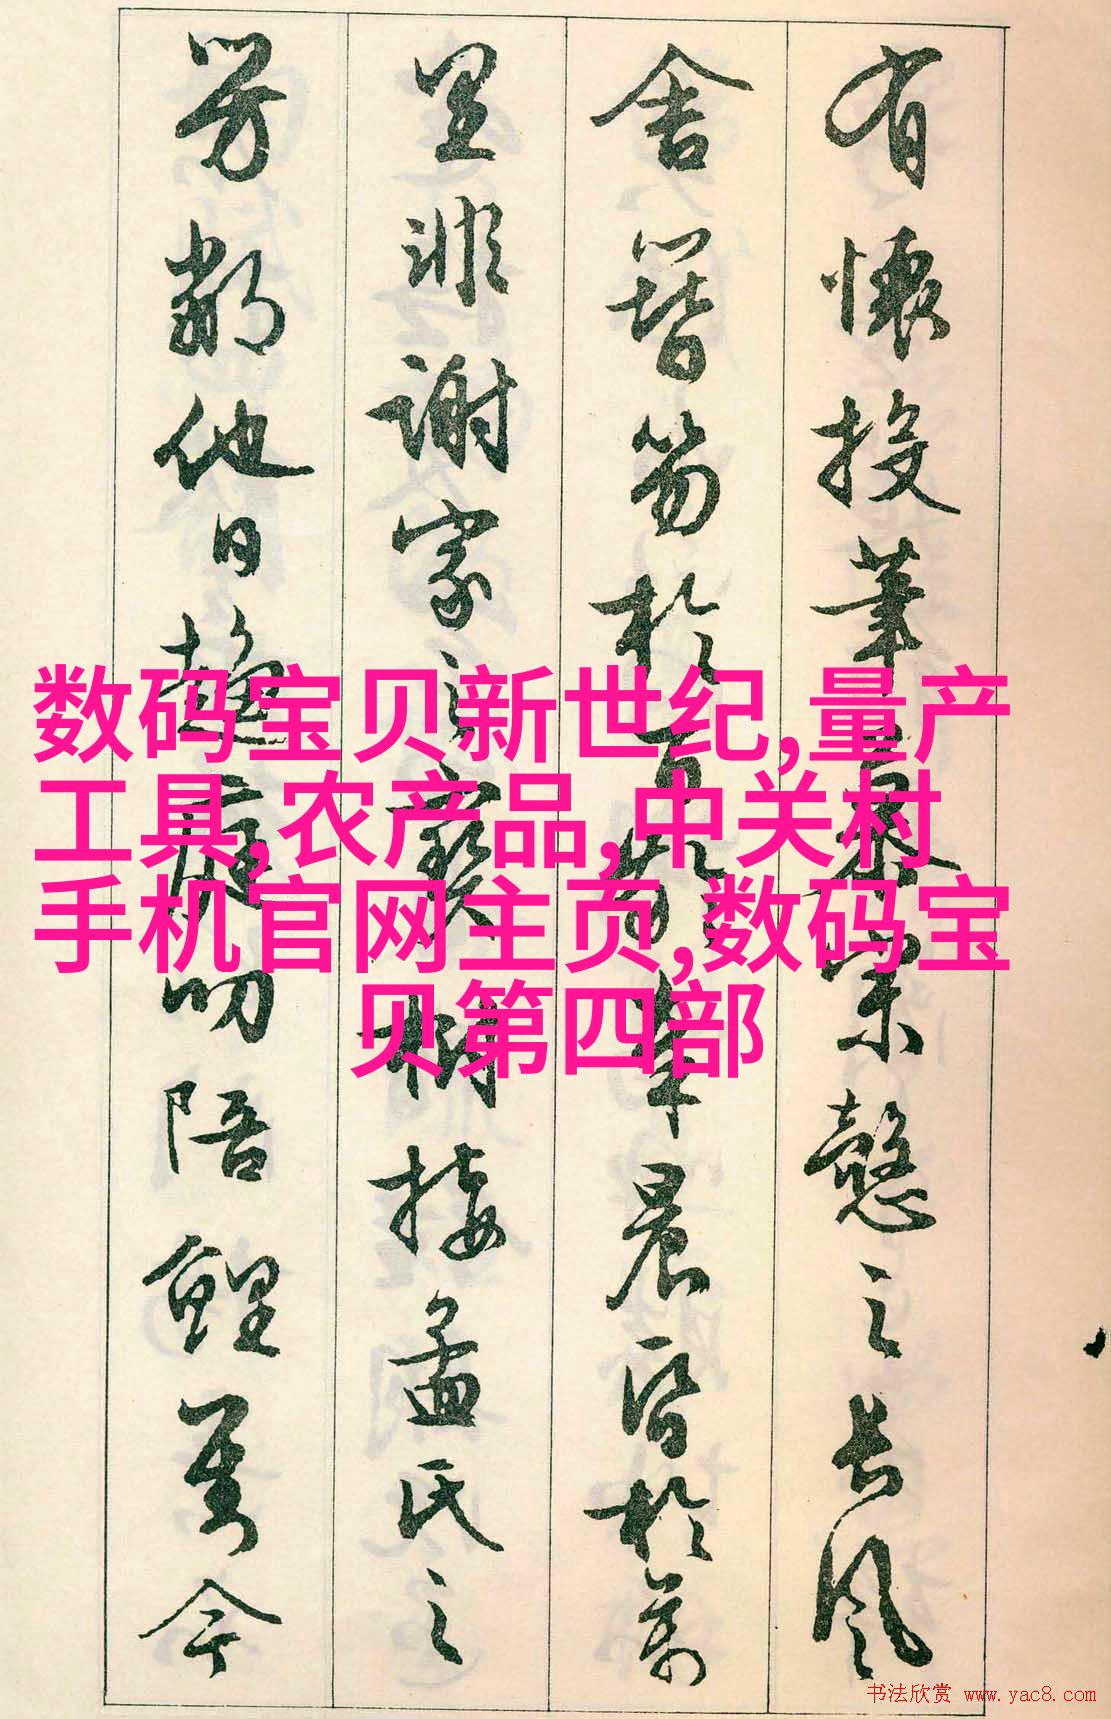 有懷投筆慕宗慤之長風
舍簪笏於百齡奉晨昏於萬
里非謝家之寶樹接孟氏之
芳鄰他日趨庭叨陪鯉對今
数码宝贝新世纪,量产
工具,农产品,中关村
手机官网主页,数码宝
贝第四部
书法欣赏 www.yac8.com